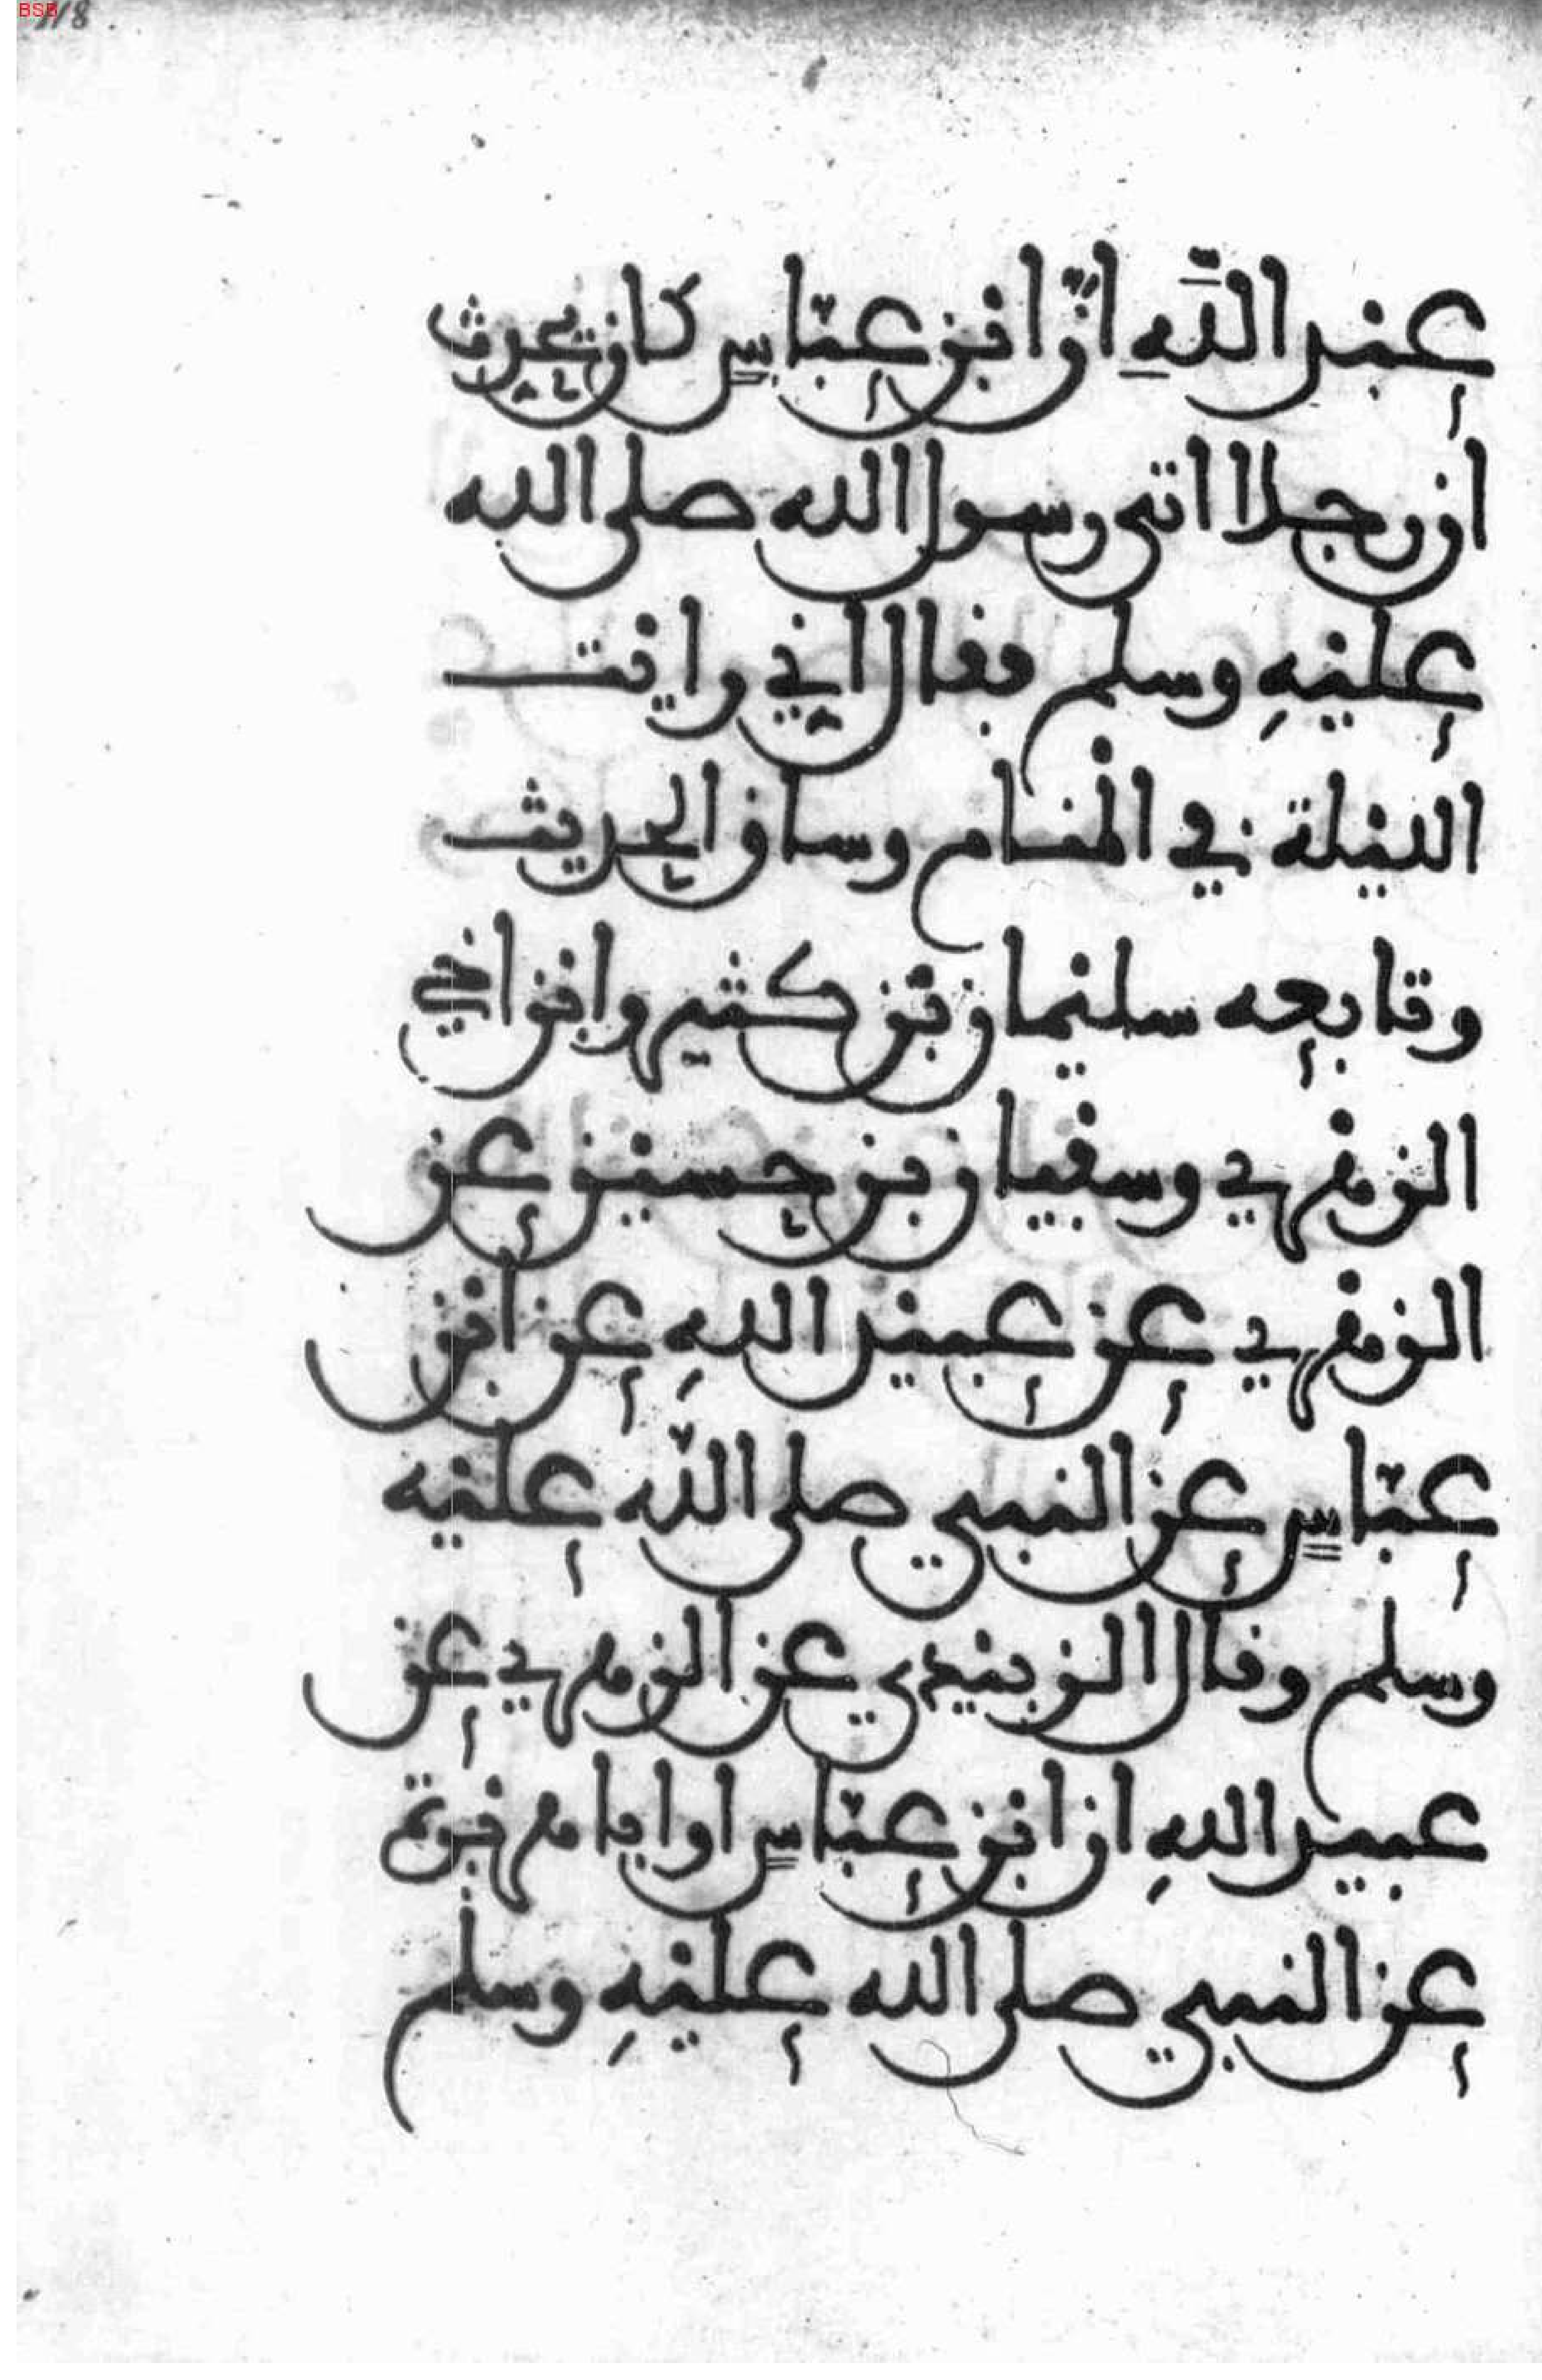 عبد اللهِ انّ ابن عبّاسٍ كان يحدث
ان رجلا اتى رسول الله صلى الله
عليهِ وسلم فقال اني رايت
الليلة في المنام وساق الحديث
وتابعه سليمان بن كثير وابن اخي
الزهري وسفيان بن حسين عن
الزهري عن عبيد اللهِ عن ابن
عبّاسٍ عن النبي صلى اللّه عليه
وسلم وقال الزبيدي عن الزهري عن
عبيد اللهِ ان ابن عبّاسٍ او ابا هريرة
عن النبي صلى الله عليهِ وسلم
BSB